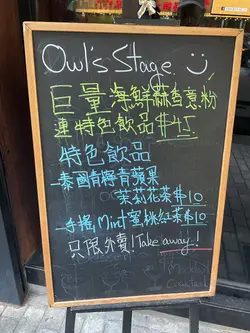 Owl's Stage
巨量海鮮蒜香意粉
連特色飲品$45
特色飲品
-泰國青檸青蘋果
茉莉花茶$10
-手搖Mint蜜桃紅茶$10
只限外賣!Take away!